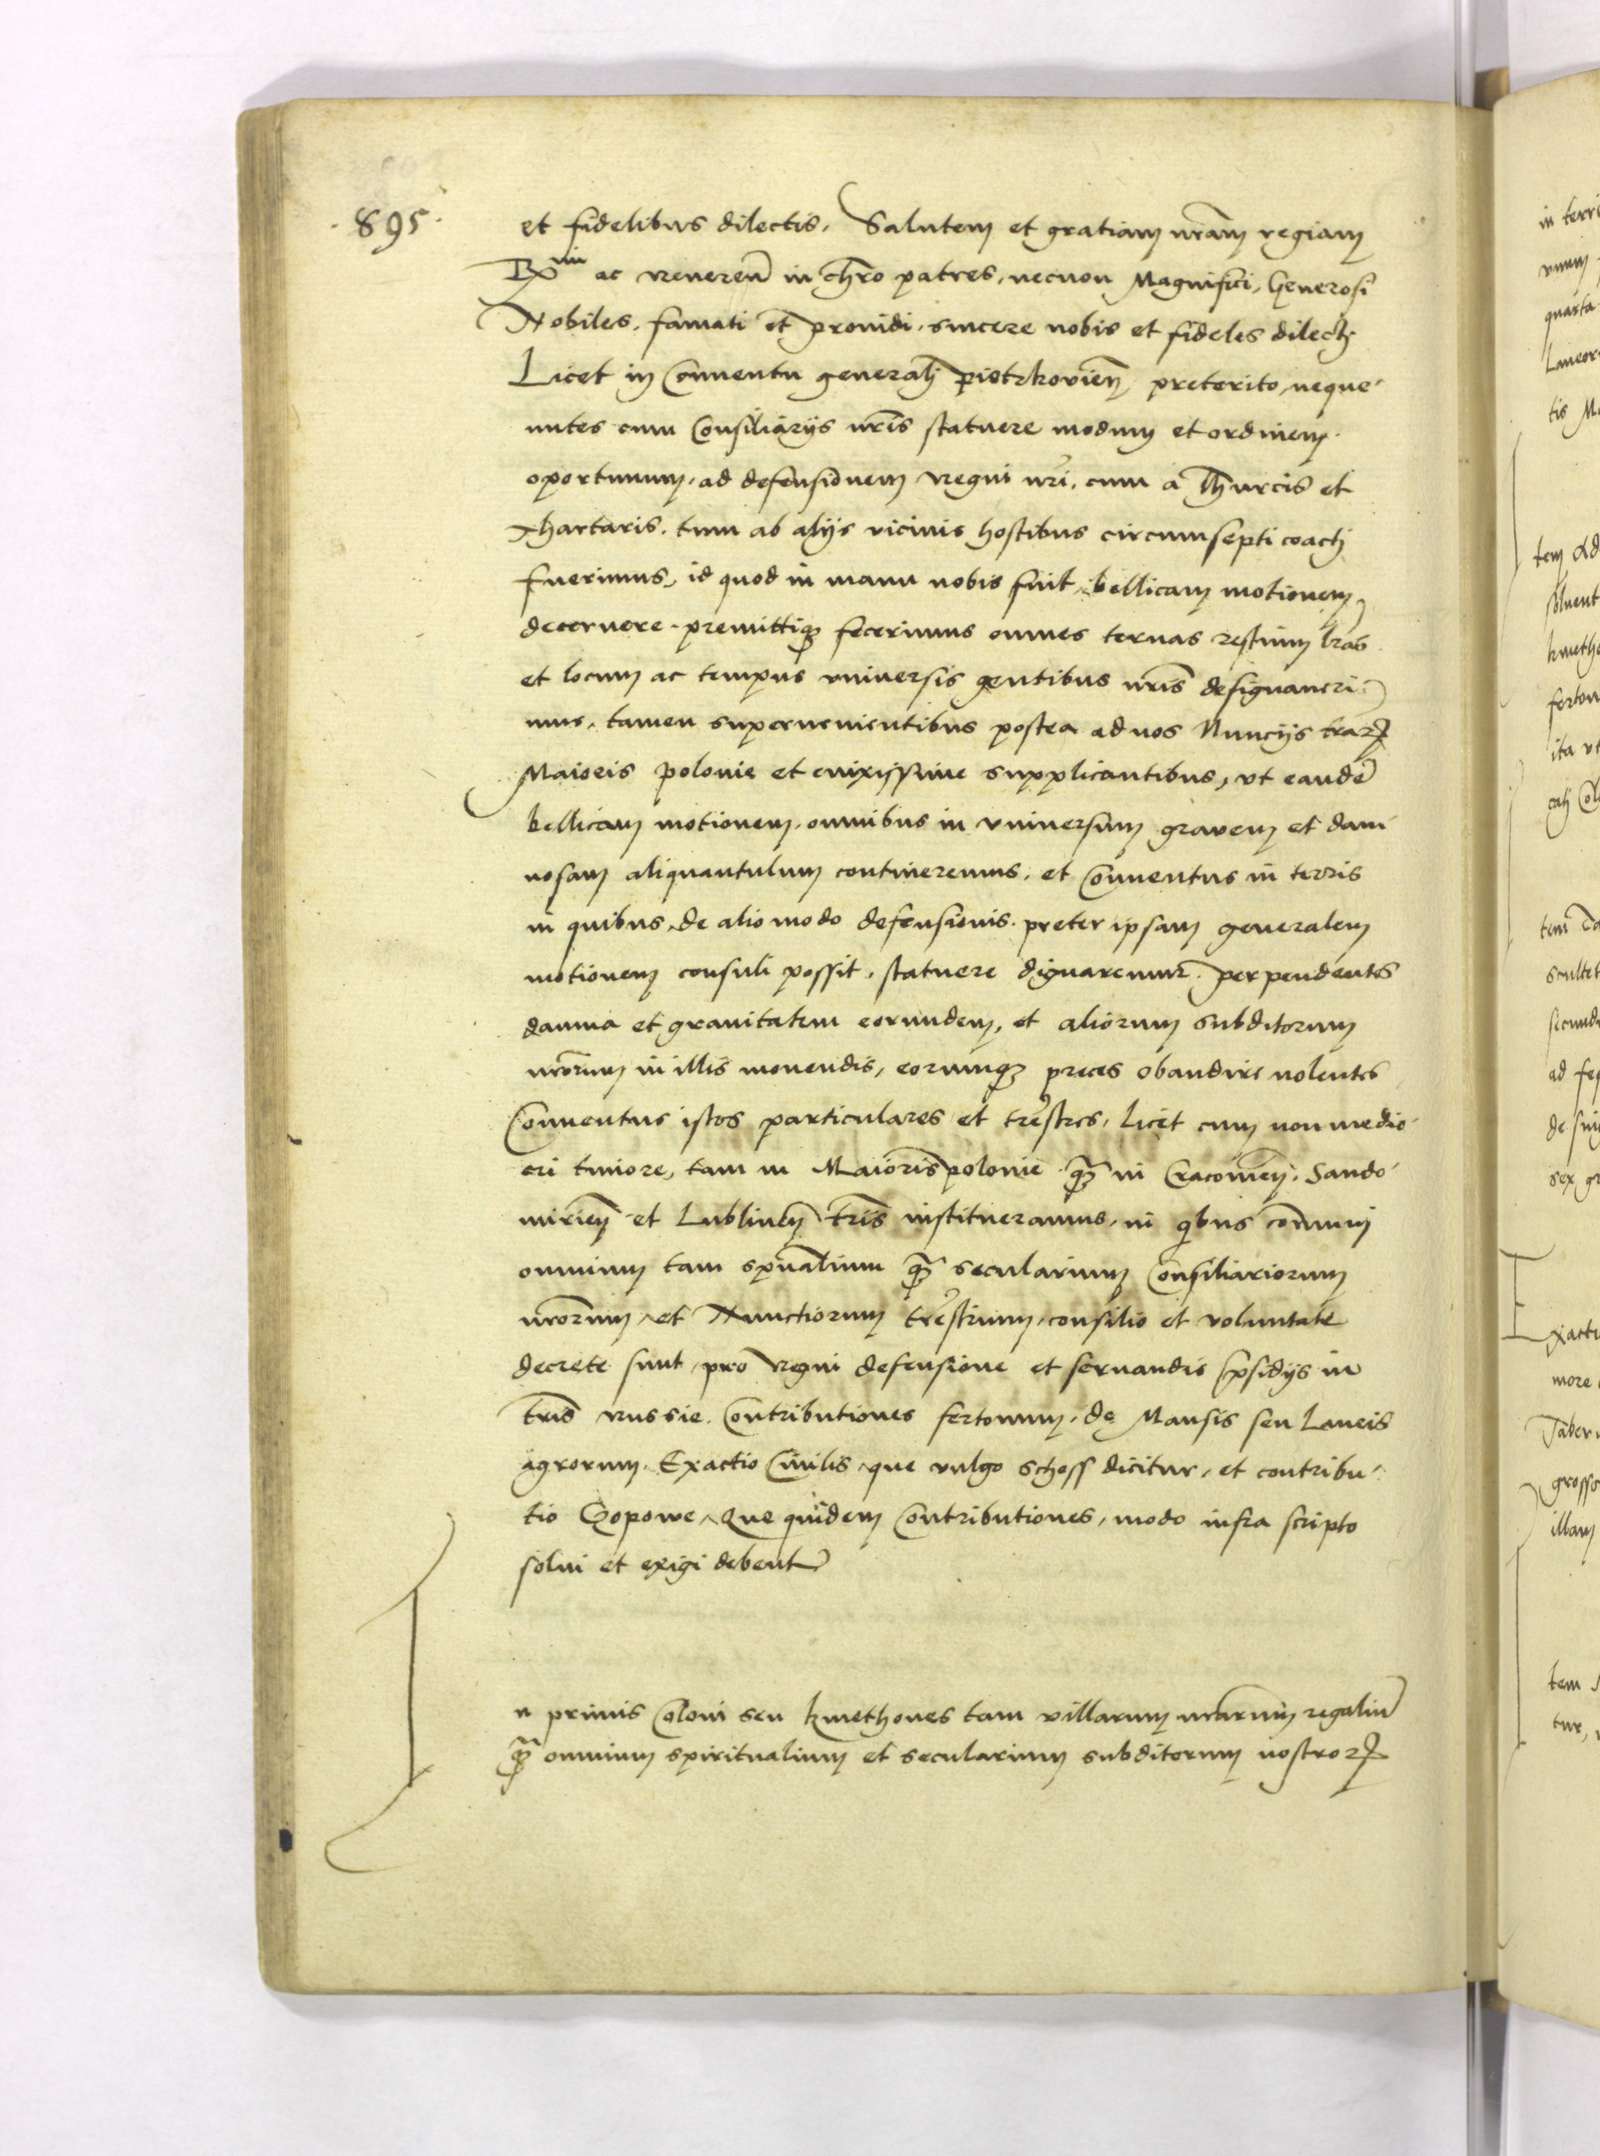 895
et fidelibus dilectis. Salutem et gratiam nrãm regiam
Rmi ac reveren̄ in chrō patres, necnon Magnifici, Generosi
Nobiles, famati et providi, sincere nobis et fideles dilecti
Licet in Conventu generali piotrkovien̄ preterito, neque-
untes cum Consiliariis nrīs statuere modum et ordinem
oportunum, ad defensionem regni nrī, cum a Thurcis et
Thartaris, tum ab alijs vicinis hostibus circumsepti coacti
fuerimus, id quod in manu nobis fuit, bellicam motionem
decernere premittiq₃ fecerimus omnes ternas restium lrās
et locum ac tempus universis gentibus nrīs designaueri-
mus, tamen supervenientibus postea ad nos Nuncijs trār̨
Maioris polonie et enixissime supplicantibus, ut eandē
bellicam motionem, omnibus in universum gravem et dam-
nosam aliquantulum contineremus, et Conventus in terris
in quibus de alio modo defensionis preter ipsam generalem
motionem consuli possit, statuere dignaremur. perpendentes
damna et gravitatem eorundem, et aliorum subditorum
nrōrum in illis movendis, eorumq₃ preces obaudire nolentes
Conventus istos particulares et trēstres, licet cum non medio-
cri timore, tam in Maioris polonie q̄₃ in Cracovien̄, Sando-
mirien̄ et Lublinen̄ trīs institueramus, in qbus communi
omnium tam spūalium q̄₃ secularium Consiliariorum
nrōrum, et Nunctiorum trēstrium, consilio et voluntate
decrete sunt, pro regni defensione et servandis p̄sidijs in
trīs russie. Contributiones fertonum, de Mansis seu Laneis
agrorum. Exactio Civilis, que vulgo schoss dicitur, et contribu-
tio Czopowe, Que quidem Contributiones, modo infra scripto
solui et exigi debent
In primis Coloni seu kmethones tam villarum nrārum regaliū
q̄₃ omnium spiritualium et secularium subditorum nostror̨